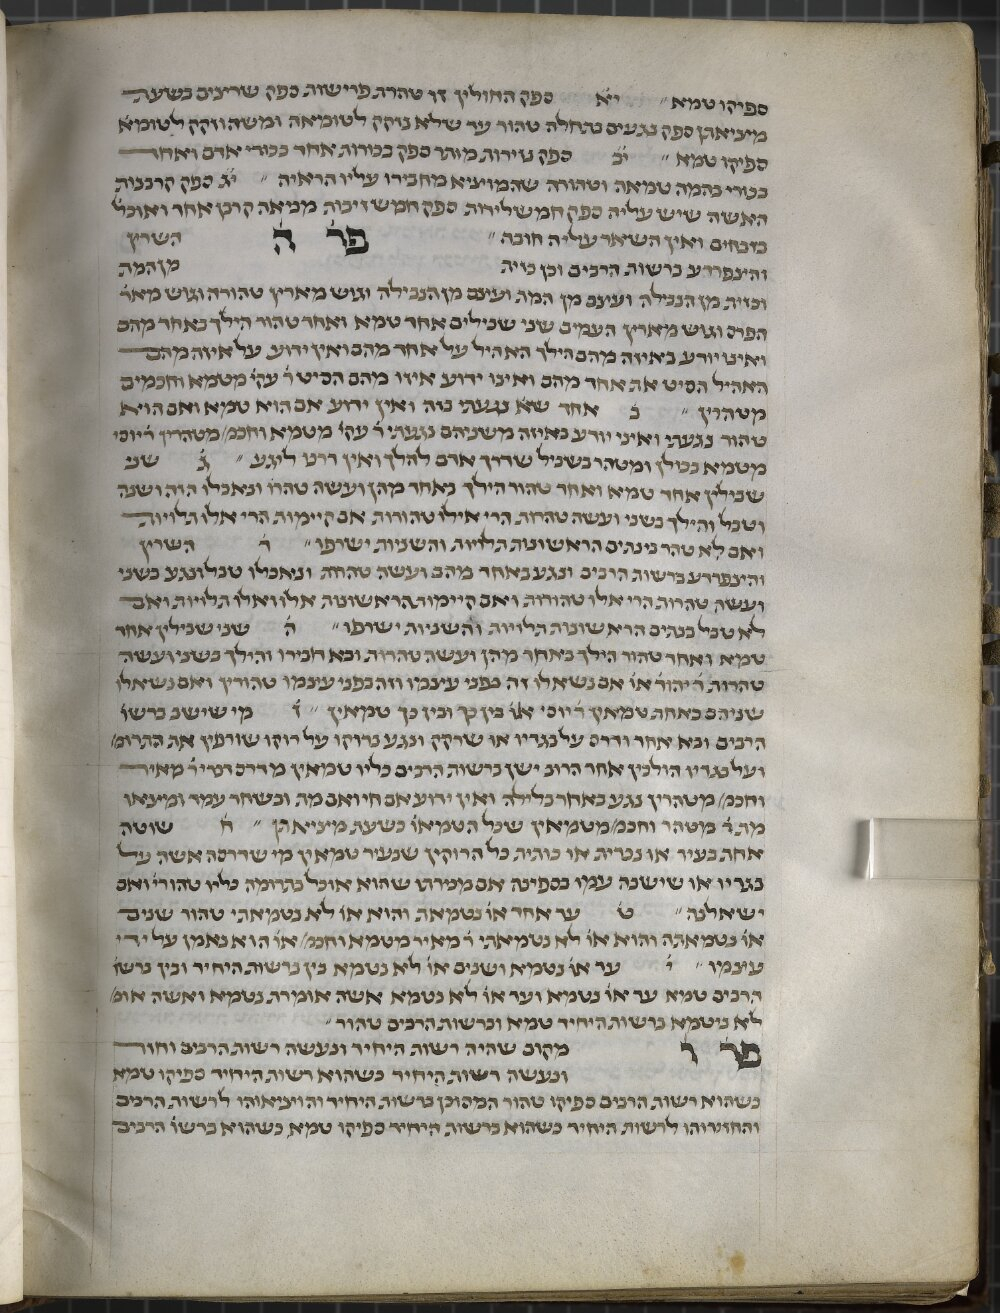 ספיקו טמא״ יא ספק החולין זו טהרת פרישות ספק שרצים בשעת
מציאתן ספק נגעים בתחלה טהור עד שלא נזקק לטומאה ומשהוזקק לטומא
ספיקו טמא ״ יב ספק נזירות מותר ספק בכורות אחד בכורי אדם ואחד
בכורי בהמה טמאה וטהורה שהמוציא מחבירו עליו הראיה ״ יג ספק קרבנות
האשה שיש עליה ספק חמש לידות ספק חמש זיבות מביאה קרבן אחד ואוכל
בזבחים ואין השאר עליה חובה ״ פר ה השרץ
והצפרדע ברשות הרבים וכן כזית מן המת
וכזית מן הנבילה ועצם מן המת ועצם מן הנבילה וגוש מארץ טהורה וגוש מאר
הפרס וגוש מארץ העמים שני שבילים אחד טמא ואחד טהור הילך באחד מהם
ואינו יודע באיזה מהם הילך האהיל על אחד מהם ואין ידוע על איזה מהם
האהיל הסיט את אחד מהם ואינו ידוע איזו מהם הסיט ר׳ עקי׳ מטמא וחכמים
מטהרין ״ ב אחד שא׳ נגעתי בזה ואין ידוע אם הוא טמא ואם הוא
טהור נגעתי ואיני יודע באיזה משניהם נגעתי ר׳ עקי׳ מטמא וחכמ׳ מטהרין ר׳ יוסי
מטמא בכולן ומטהר בשביל שדרך אדם להלך ואין דרכו ליגע ״ ג שני
שבילין אחד טמא ואחד טהור הילך באחד מהן ועשה טהרו׳ ונאכלו הזה ושנה
וטבל והילך בשני ועשה טהרות הרי אילו טהורות אם קיימות הרי אלו תלויות
ואם לא טהר בינתים הראשונות תלויות והשניות ישרפו ״ ד השרץ
והצפרדע ברשות הרבים ונגע באחד מהם ועשה טהרות ונאכלו טבל ונגע בשני
ועשה טהרות הרי אלו טהורות ואם קיימות הראשונות אלו ואלו תלויות ואם
לא טבל בנתים הראשונות תלויות והשניות ישרפו ״ ה שני שבילין אחד
טמא ואחד טהור הילך באחד מהן ועשה טהרות ובא חבירו והילך בשני ועשה
טהרות ר׳ יהוד׳ או׳ אם נשאלו זה בפני עצמו וזה בפני עצמו טהורין ואם נשאלו
שניהם כאחת טמאין ר׳ יוסי או׳ בין כך ובין כך טמאין ״ ז מי שישב ברשו׳
הרבים ובא אחד ודרס על בגדיו או שרקק ונגע ברוקו על רוקו שורפין את התרומ׳
ועל בגדיו הולכין אחר הרוב ישן ברשות הרבים כליו טמאין מדרס דברי ר׳ מאיר
וחכמ׳ מטהרין נגע באחד בלילה ואין ידוע אם חי ואם מת ובשחר עמד ומצאו
מת ר׳ מטהר וחכמ׳ מטמאין שכל הטמאו׳ כשעת מציאתן ״ ח שוטה
אחת בעיר או נכרית או כותית כל הרוקין שבעיר טמאין מי שדרסה אשה על
בגדיו או שישבה עמו בספינה אם מכירתו שהוא אוכל בתרומה כליו טהורי׳ ואם
ישאלנה ״ ט עד אחד או׳ נטמאת והוא או׳ לא נטמאתי טהור שנים
או׳ נטמאתה והוא או׳ לא נטמאתי ר׳ מאיר מטמא וחכמ׳ או׳ הוא נאמן על ידי
עצמו ״ י׳ עד או׳ נטמא ושנים או׳ לא נטמא בין ברשות היחיד ובין ברשו׳
הרבים טמא עד או׳ נטמא ועד או׳ לא נטמא אשה אומרת נטמא ואשה אומ׳
לא ניטמא ברשות היחיד טמא וברשות הרבים טהור ״
פר ו מקום שהיה רשות היחיד ונעשה רשות הרבים וחזר
ונעשה רשות היחיד כשהוא רשות היחיד ספיקו טמא
כשהוא רשות הרבים ספיקו טהור המסוכן ברשות היחיד והוציאוהו לרשות הרבים
והחזירוהו לרשות היחיד כשהוא ברשות היחיד ספיקו טמא כשהוא ברשו׳ הרבים